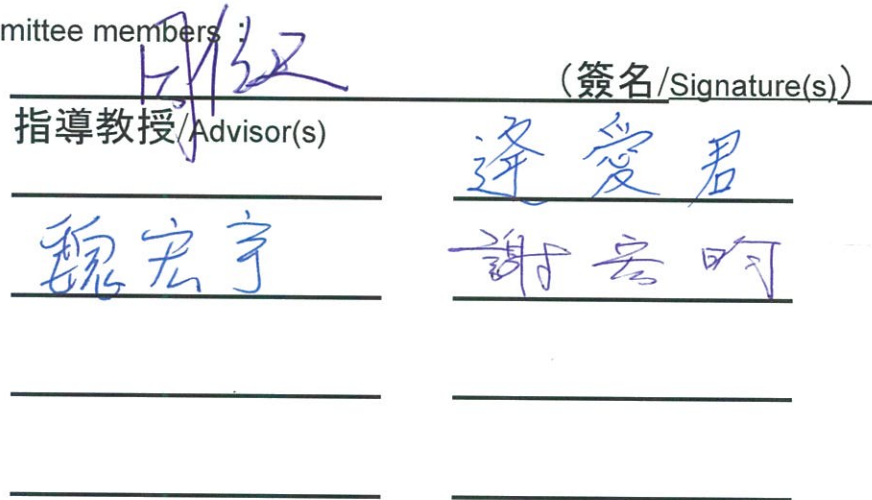 mittee members：
（簽名/Signature(s)）
指導教授/Advisor(s)
逄愛君
魏宏宇 謝宏昀